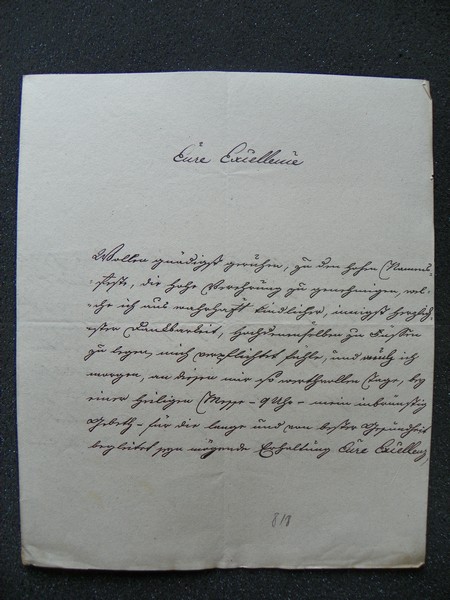 Eure Excellenie
Wollen gnädigst geruhen, zu dem hohen Namens-
feste, die hohe Verehrung zu genehmigen, wel-
che ich aus wahrhaft kindlicher, innigst herzlich-
ster Dankbarkeit, Hochdenenselben zu Füssen
zu legen, mich verpflichtet fühle, und ich
morgen, an diesem mir so werthvollen Tage, bey
einer Heiligen Messe - 9 Uhr - mein inbrünstig
Gebeth - für die lange und von bester Gesundheit
begleitet seyn mögende Erhaltung Eure Excellenz,
818